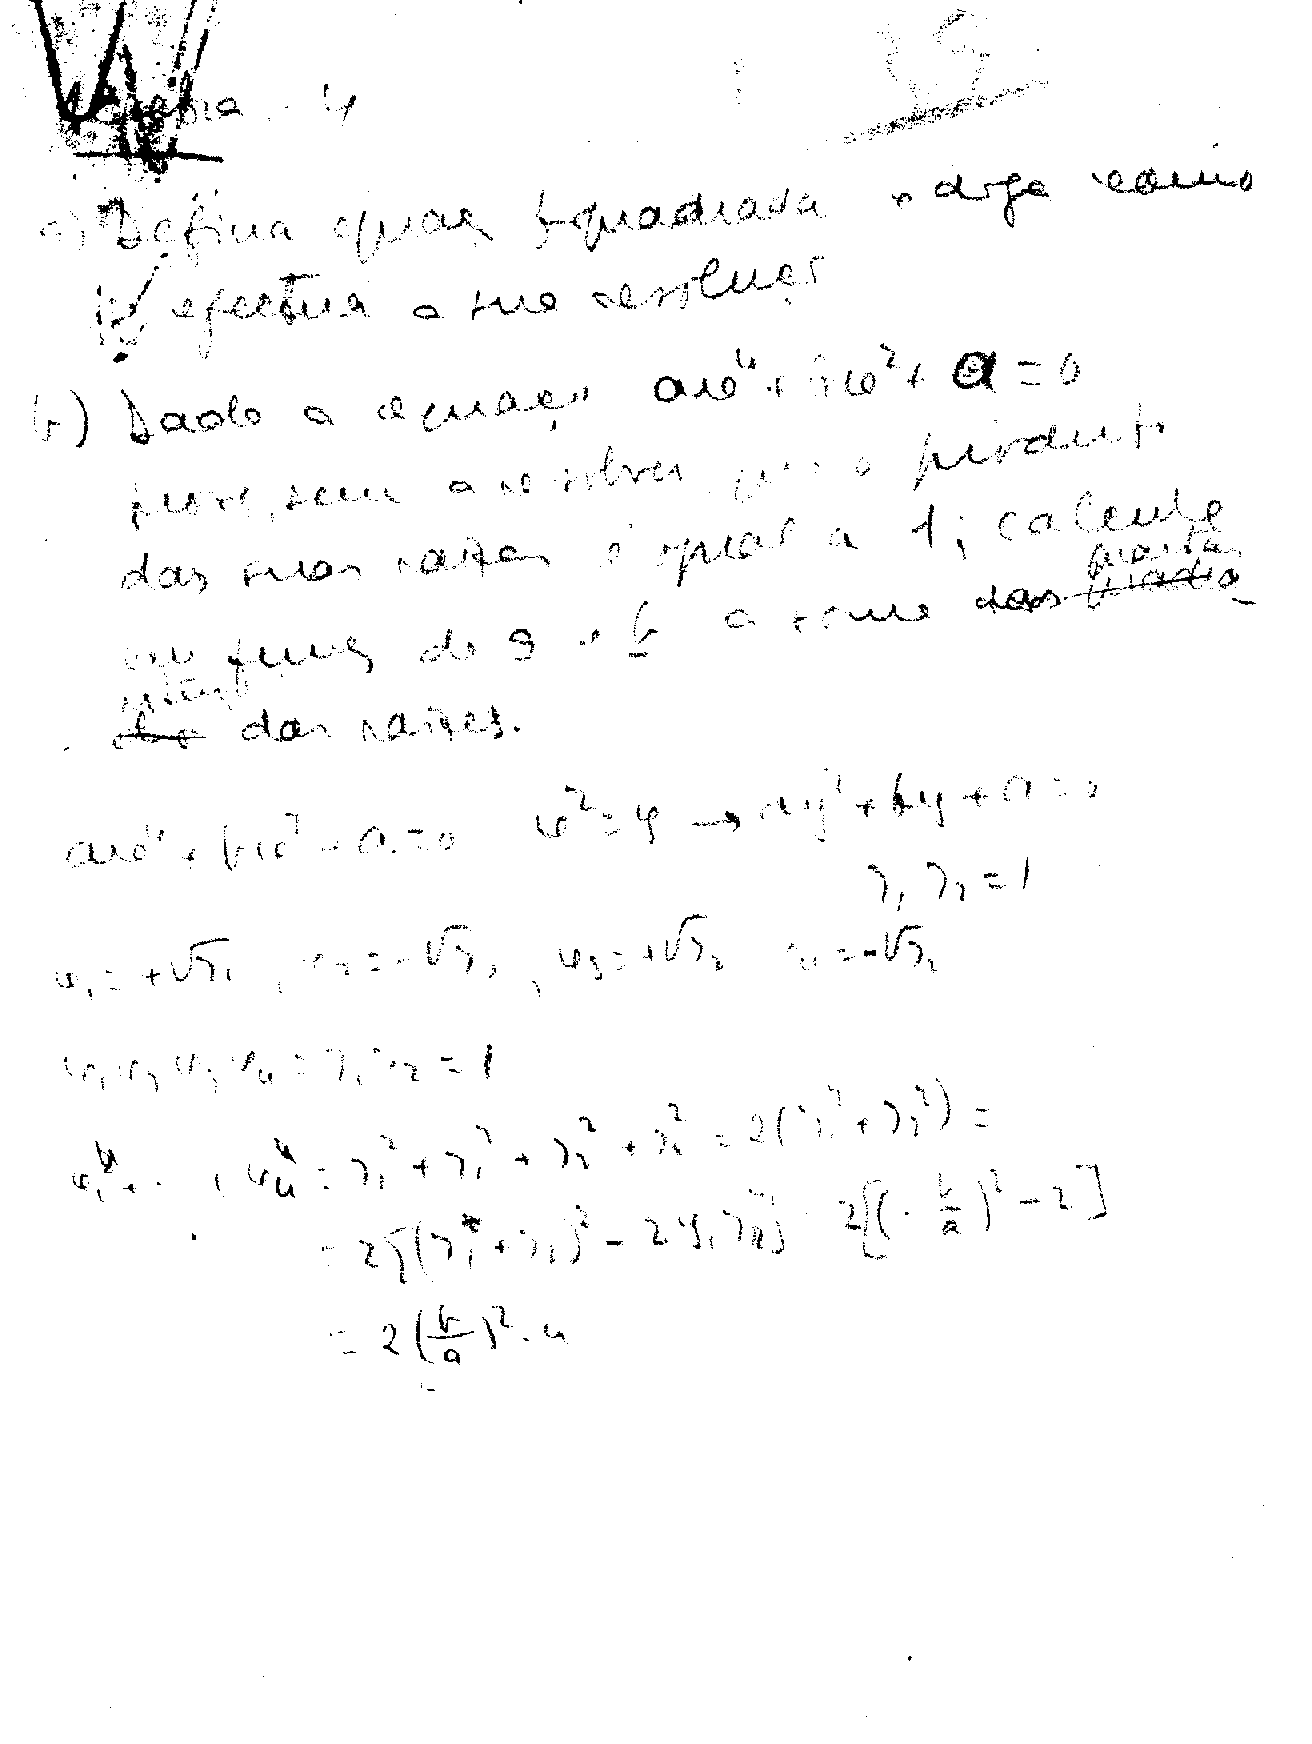 a) Defina equaç biquadrada e diga como
se efectua a sua resoluçã
b) Dada a equaçã ax⁴ + bx² + a = 0
prove, sem a resolver, que o produto
das suas raízes é igual a 1; calcule
em funçã de a e b a soma das quartas
potências das raízes.
ax⁴ + bx² + a = 0 x² = y → ay² + by + a = 0
y₁ y₂ = 1
x₁ = +√y₁, x₂ = -√y₁, x₃ = +√y₂ x₄ = -√y₂
x₁ x₂ x₃ x₄ = y₁ y₂ = 1
x₁⁴ + ... + x₄⁴ = y₁² + y₁² + y₂² + y₂² = 2(y₁² + y₂²) =
= 2[(y₁ + y₂)² - 2y₁y₂] = 2[(-b/a)² - 2]
= 2(b/a)² - 4